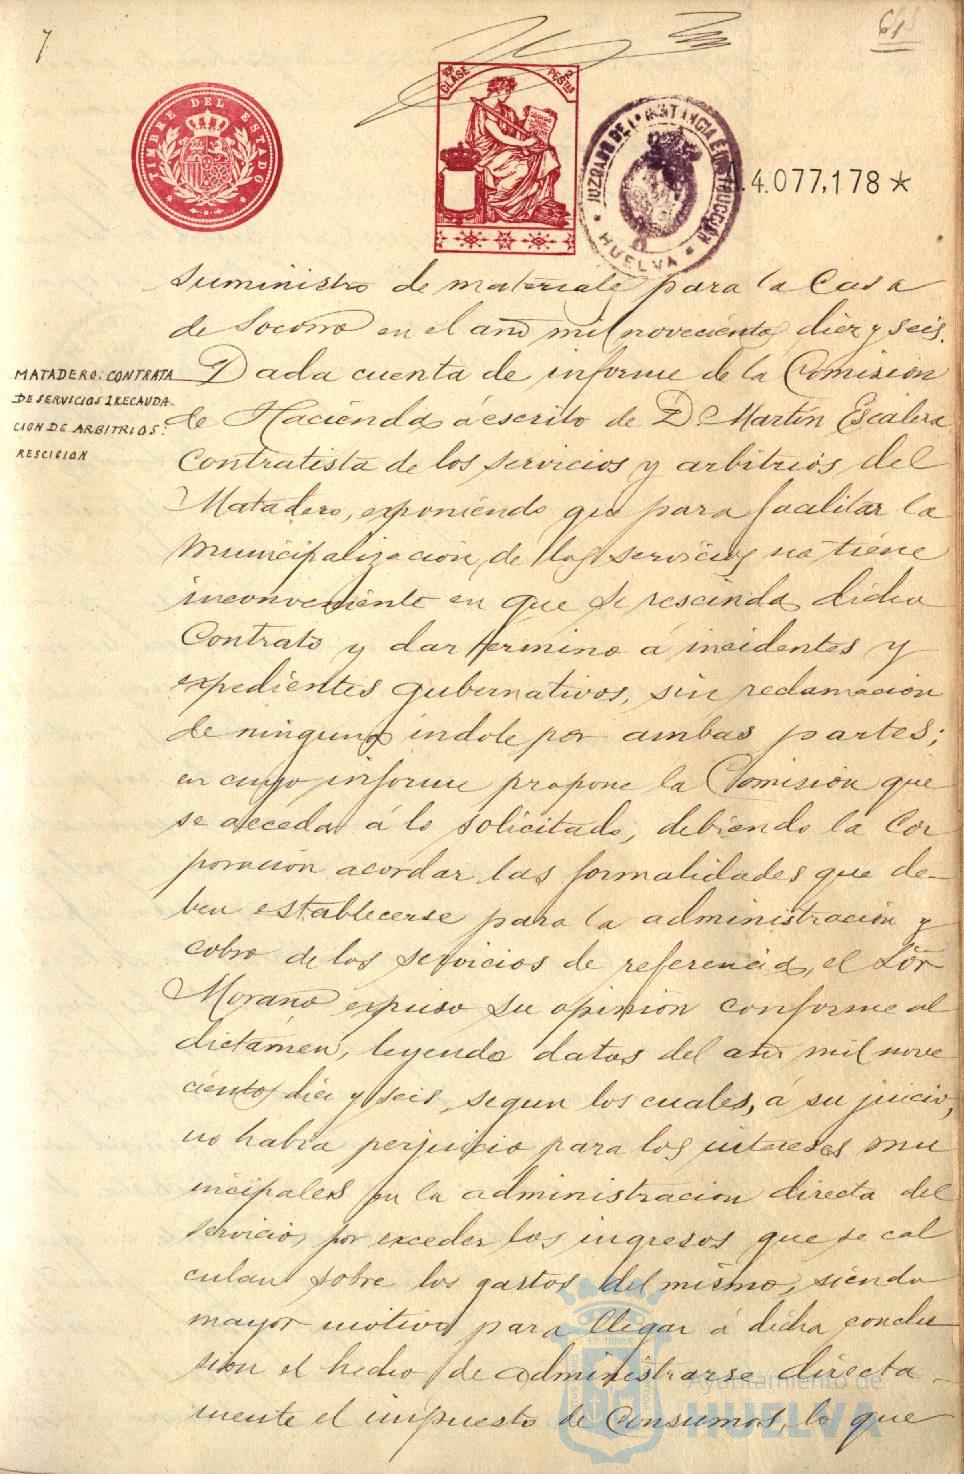 7
61
TIMBRE DEL ESTADO
CLASE
2 PESETAS
JUZGADO DE 1ª INSTANCIA E INSTRUCCIÓN
HUELVA
A.4.077,178 *
suministro de materiales para la Casa
de Socorro en el año mil novecientos diez y seis.
MATADERO: CONTRATA
DE SERVICIOS I RECAUDA-
CION DE ARBITRIOS:
RESCISION
Dada cuenta de informe de la Comisión
de Hacienda á escrito de D. Martín Escalera
Contratista de los servicios y arbitrios del
Matadero, exponiendo que para facilitar la
municipalización de los servicios no tiene
inconveniente en que se rescinda dicho
Contrato y dar término á incidentes y
expedientes gubernativos, sin reclamación
de ninguna índole por ambas partes;
en cuyo informe propone la Comisión que
se acceda á lo solicitado, debiendo la Cor
poración acordar las formalidades que de-
ben establecerse para la administración y
cobro de los servicios de referencia, el Sör
Morano expuso su opinión conforme al
dictámen, leyendo datos del año mil nove
cientos diez y seis, segun los cuales, á su juicio,
no habrá perjuicio para los intereses mu
nicipales en la administración directa del
servicio, por exceder los ingresos que se cal
culan sobre los gastos del mismo, siendo
mayor motivo para llegar á dicha conclu
sión el hecho de administrarse directa-
mente el impuesto de Consumos, lo que
Ayuntamiento de
HUELVA